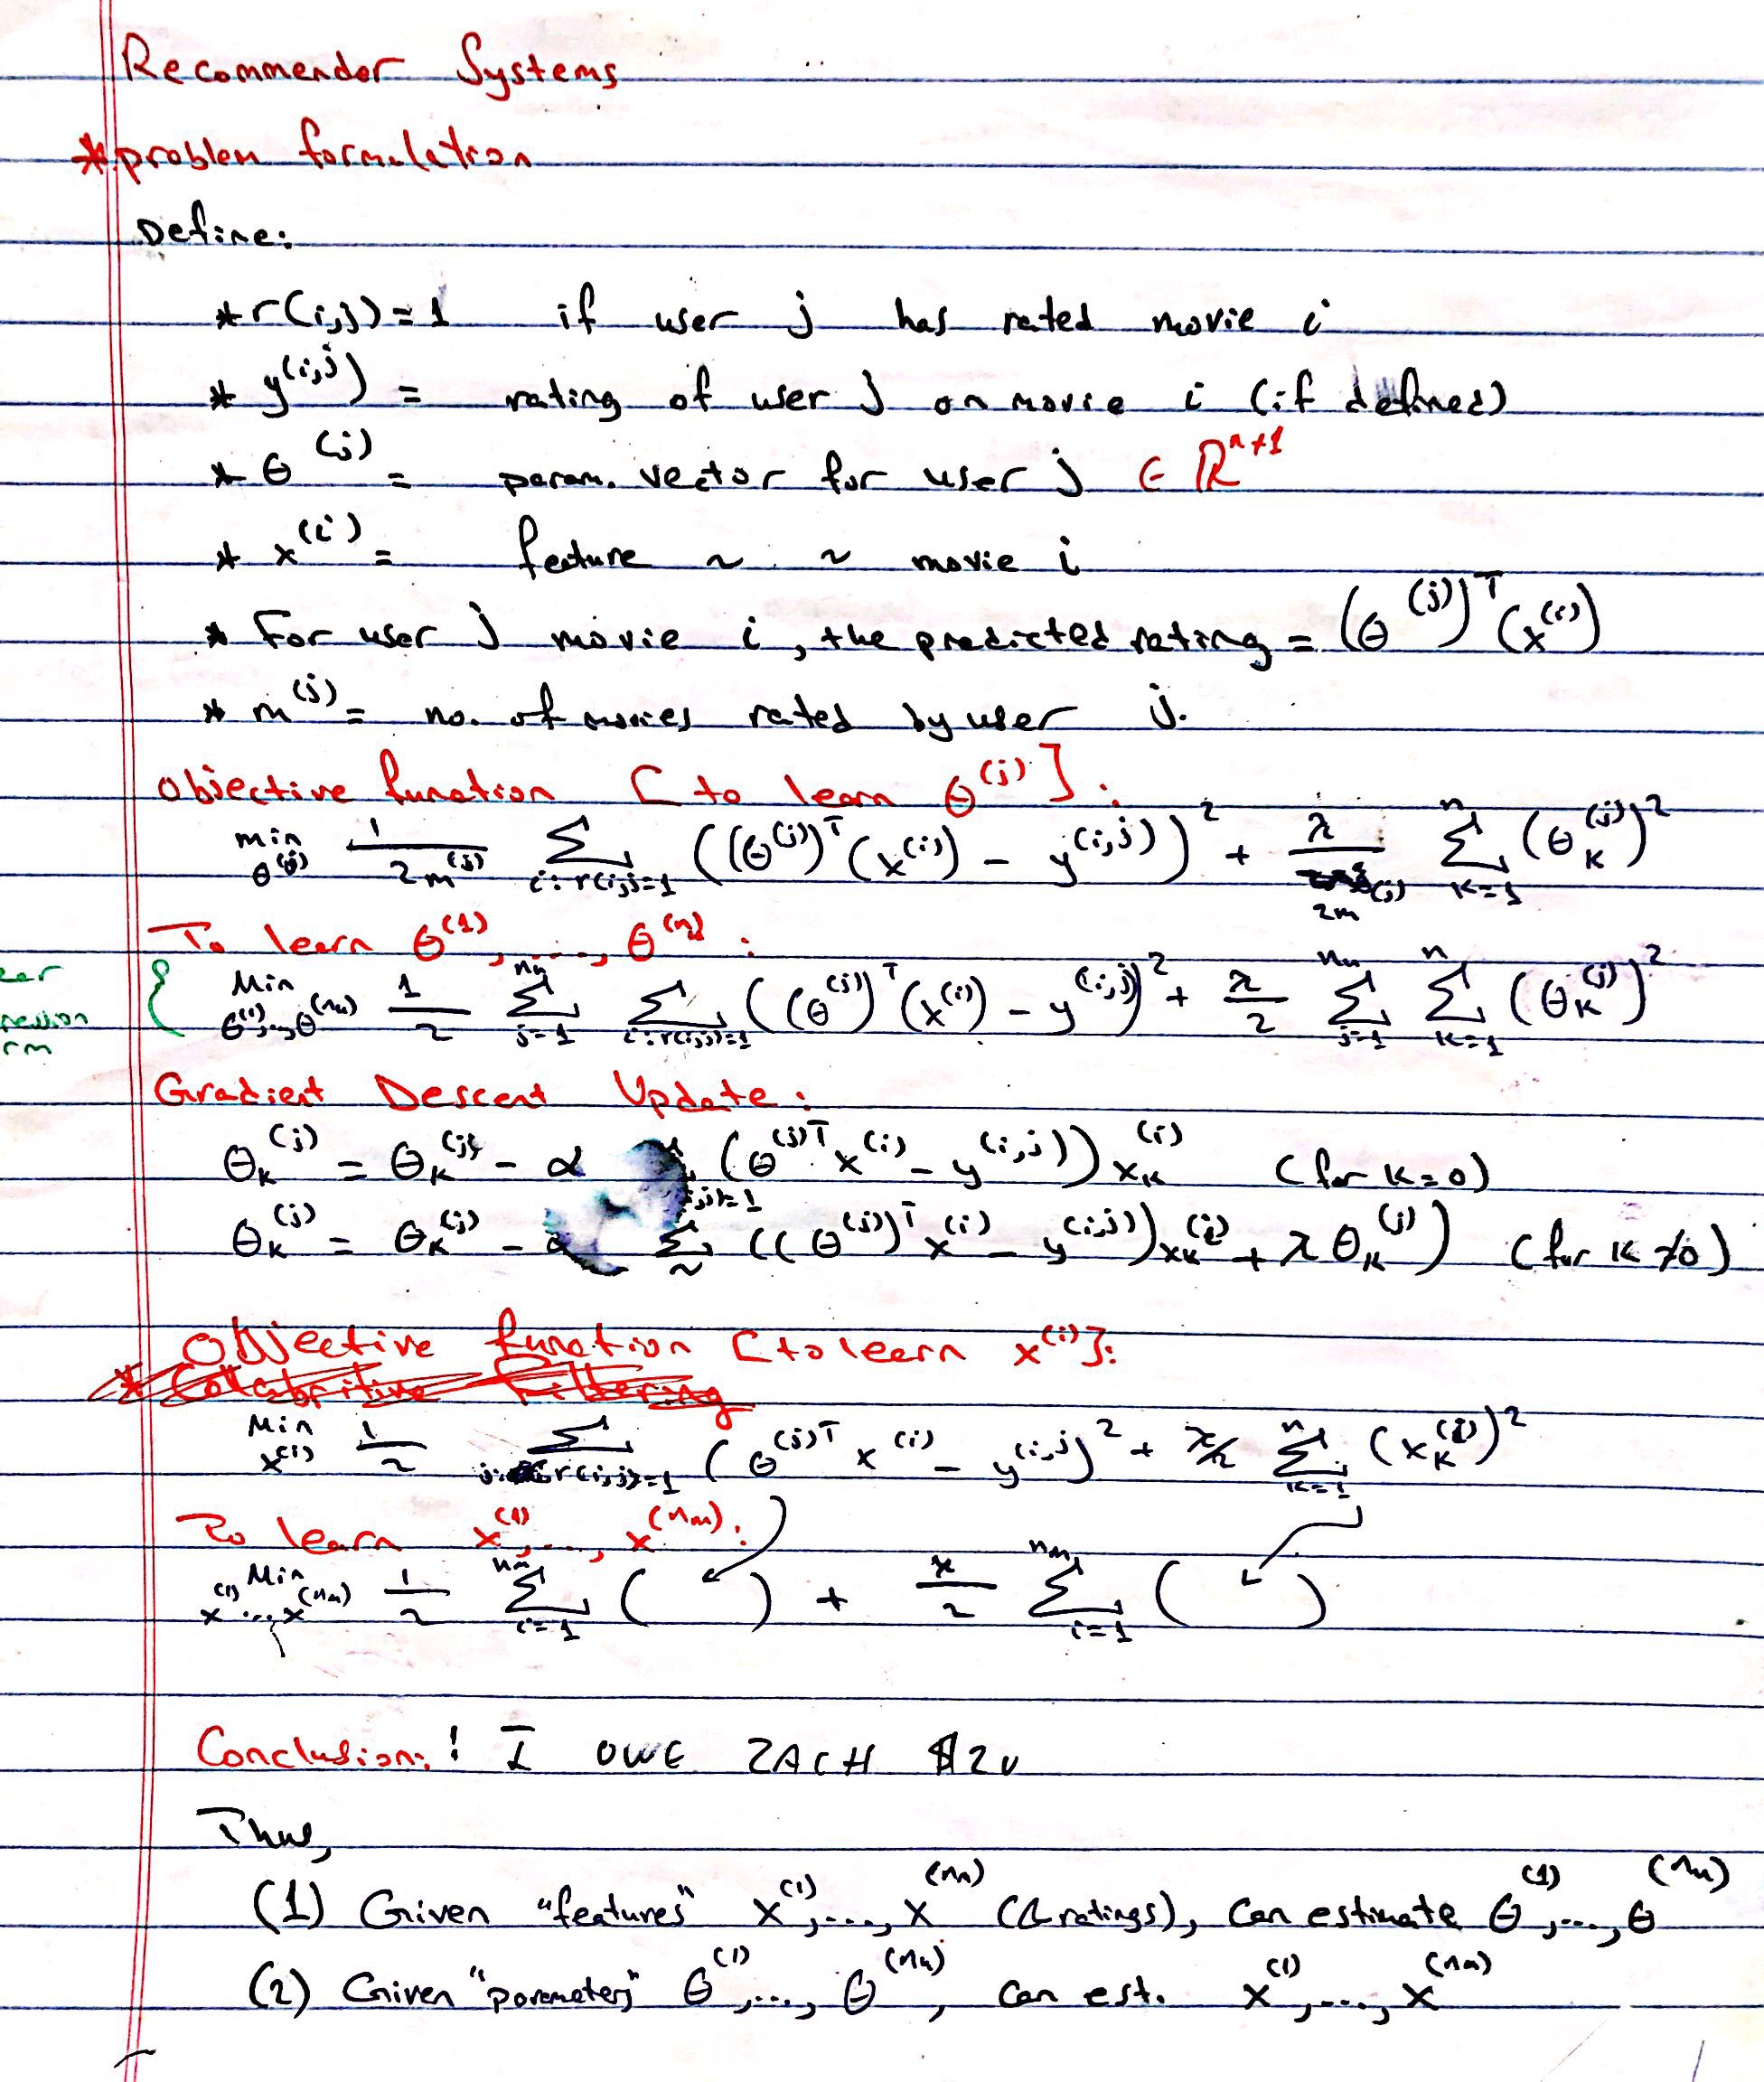 Recommender Systems
* problem formulation
Define:
* r(i,j) = 1 if user j has rated movie i
* y^(i,j) = rating of user j on movie i (if defined)
* θ^(j) = param. vector for user j ∈ ℝ^n+1
* x^(i) = feature ~ ~ movie i
* For user j movie i, the predicted rating = (θ^(j))^T (x^(i))
* m^(j) = no. of movies rated by user j.
Objective function [to learn θ^(j)]:
min θ^(j) 1/2m^(j) Σ i:r(i,j)=1 ((θ^(j))^T (x^(i)) - y^(i,j))^2 + λ/2m^(j) Σ k=1 n (θ_k^(j))^2
To learn θ^(1), ..., θ^(n_u):
Min θ^(1),..,θ^(n_u) 1/2 Σ j=1 n_u Σ i:r(i,j)=1 ((θ^(j))^T (x^(i)) - y^(i,j))^2 + λ/2 Σ j=1 n_u Σ k=1 n (θ_k^(j))^2
Gradient Descent Update:
θ_k^(j) = θ_k^(j) - α (θ^(j)T x^(i) - y^(i,j)) x_k^(i) (for k=0)
,j)=1
θ_k^(j) = θ_k^(j) - α Σ ~ ((θ^(j))^T x^(i) - y^(i,j)) x_k^(i) + λ θ_k^(j)) (for k ≠ 0)
Objective function [to learn x^(i)]:
* Collabritive Filtering
Min x^(i) 1/2 Σ j: r(i,j)=1 (θ^(j)T x^(i) - y^(i,j))^2 + λ/2 Σ k=1 n (x_k^(i))^2
To learn x^(1), ..., x^(n_m):
Min x^(1) ... x^(n_m) 1/2 Σ i=1 n_m ( ) + λ/2 Σ i=1 n_m ( )
Conclusion: ! I OWE ZACH $20
Thus,
(1) Given "features" x^(1), ..., x^(n_m) (& ratings), can estimate θ^(1), ..., θ^(n_u)
(2) Given "parameters" θ^(1), ..., θ^(n_u), can est. x^(1), ..., x^(n_m)